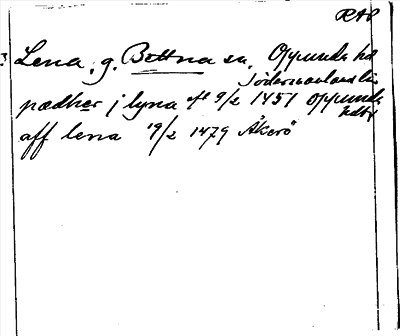 RAP
3 Lena, g. Bettna sn, Oppunda hd
Södermanlands län
pædher j lyna aft 9/2 1451 Oppunda
hdbr
aff lena 19/2 1479 Åkerö